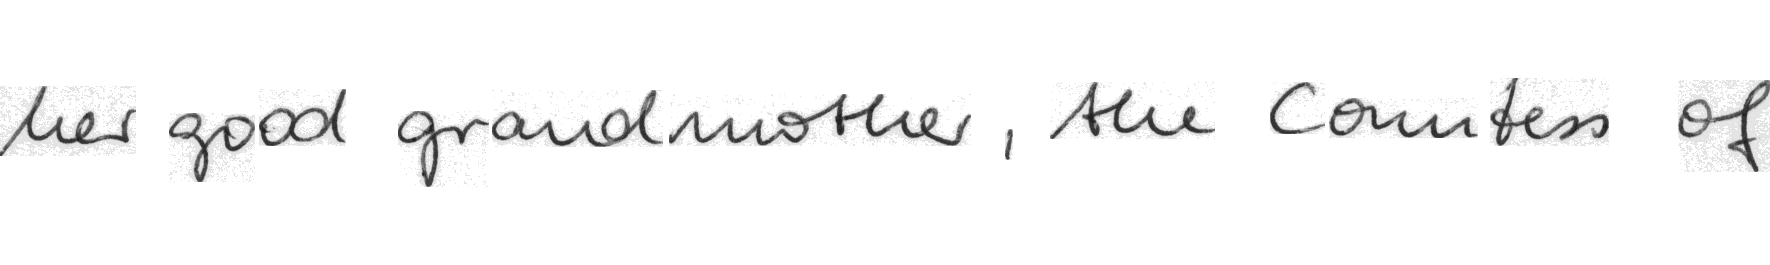 her good grandmother, the Countess of